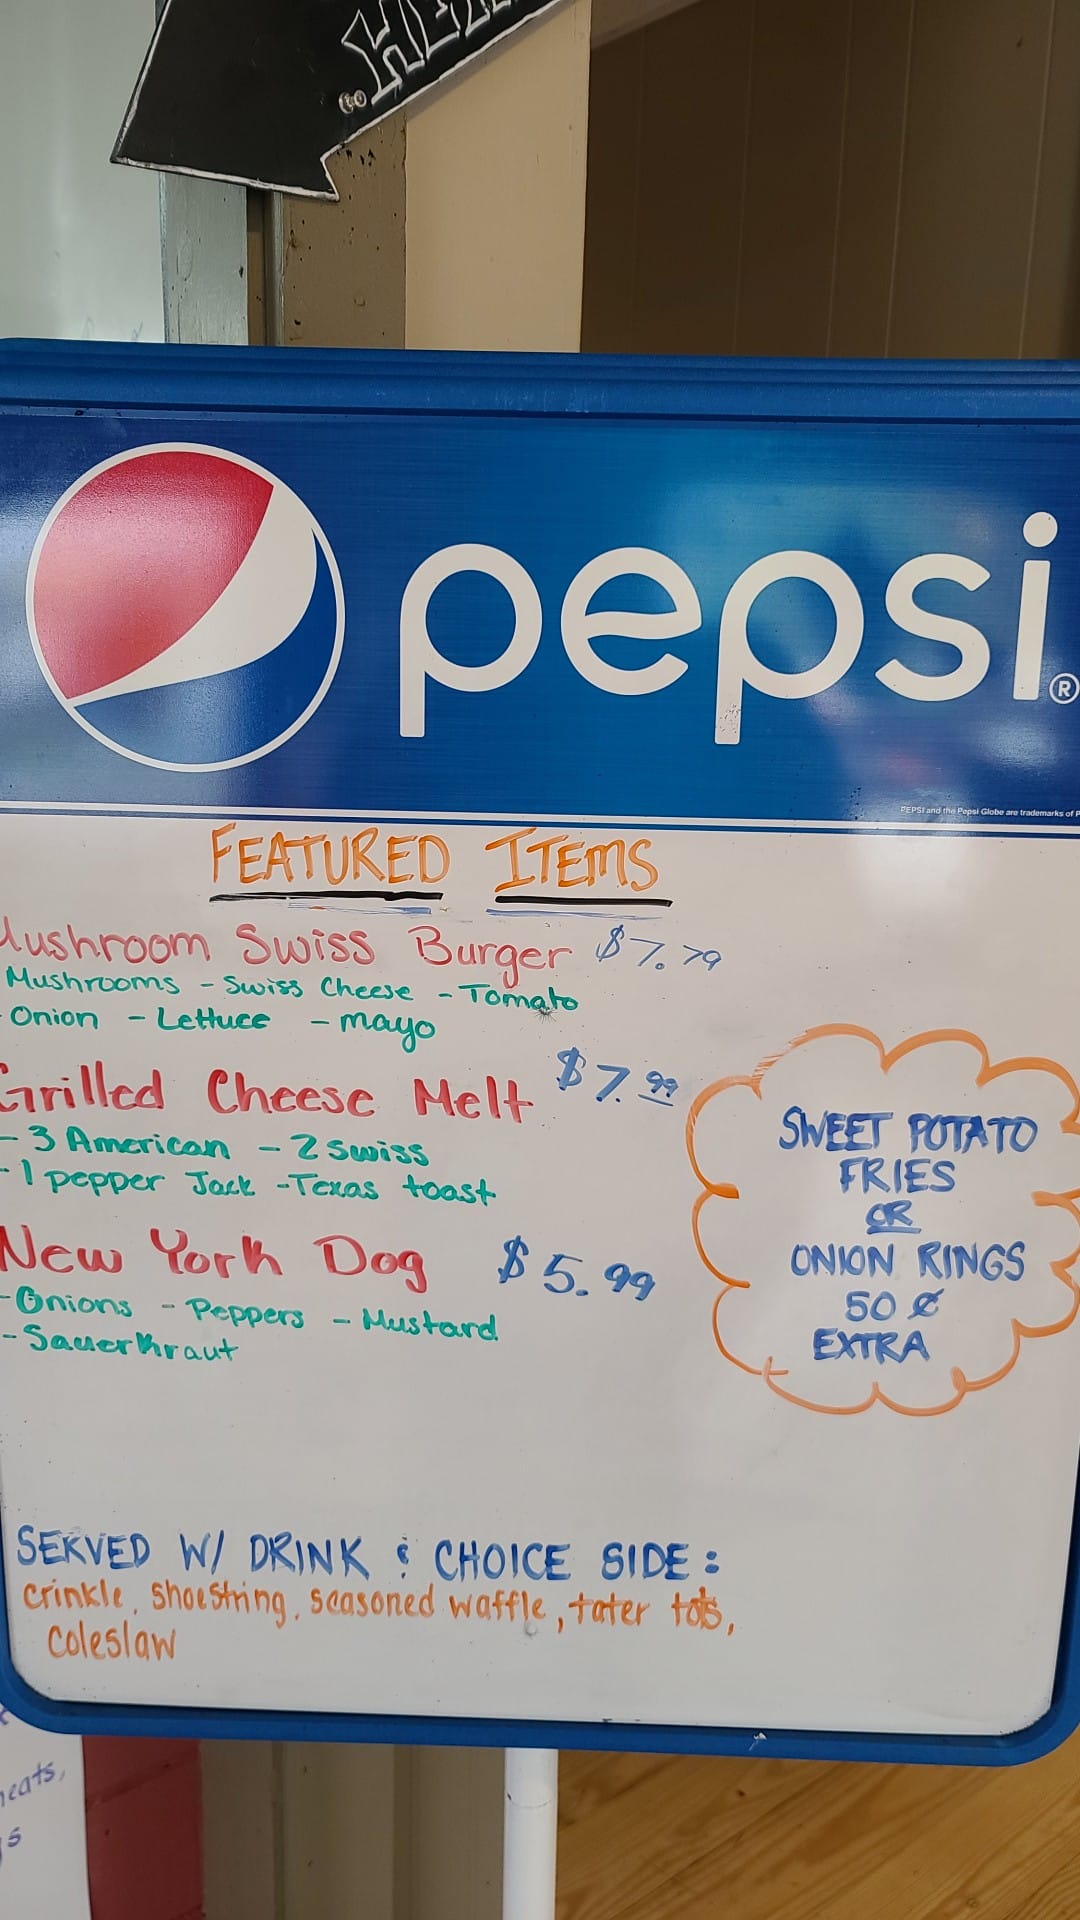 pepsi®
PEPSI and the Pepsi Globe are trademarks of P
FEATURED ITEMS
Mushroom Swiss Burger $7.79
Mushrooms - Swiss Cheese - Tomato
- Onion - Lettuce - mayo
Grilled Cheese Melt $7.99
- 3 American - 2 Swiss
- 1 pepper Jack - Texas toast
New York Dog $5.99
- Onions - Peppers - Mustard
- Sauerkraut
SWEET POTATO
FRIES
OR
ONION RINGS
50 ¢
EXTRA
SERVED W/ DRINK & CHOICE SIDE:
crinkle, shoestring, seasoned waffle, tater tots,
coleslaw